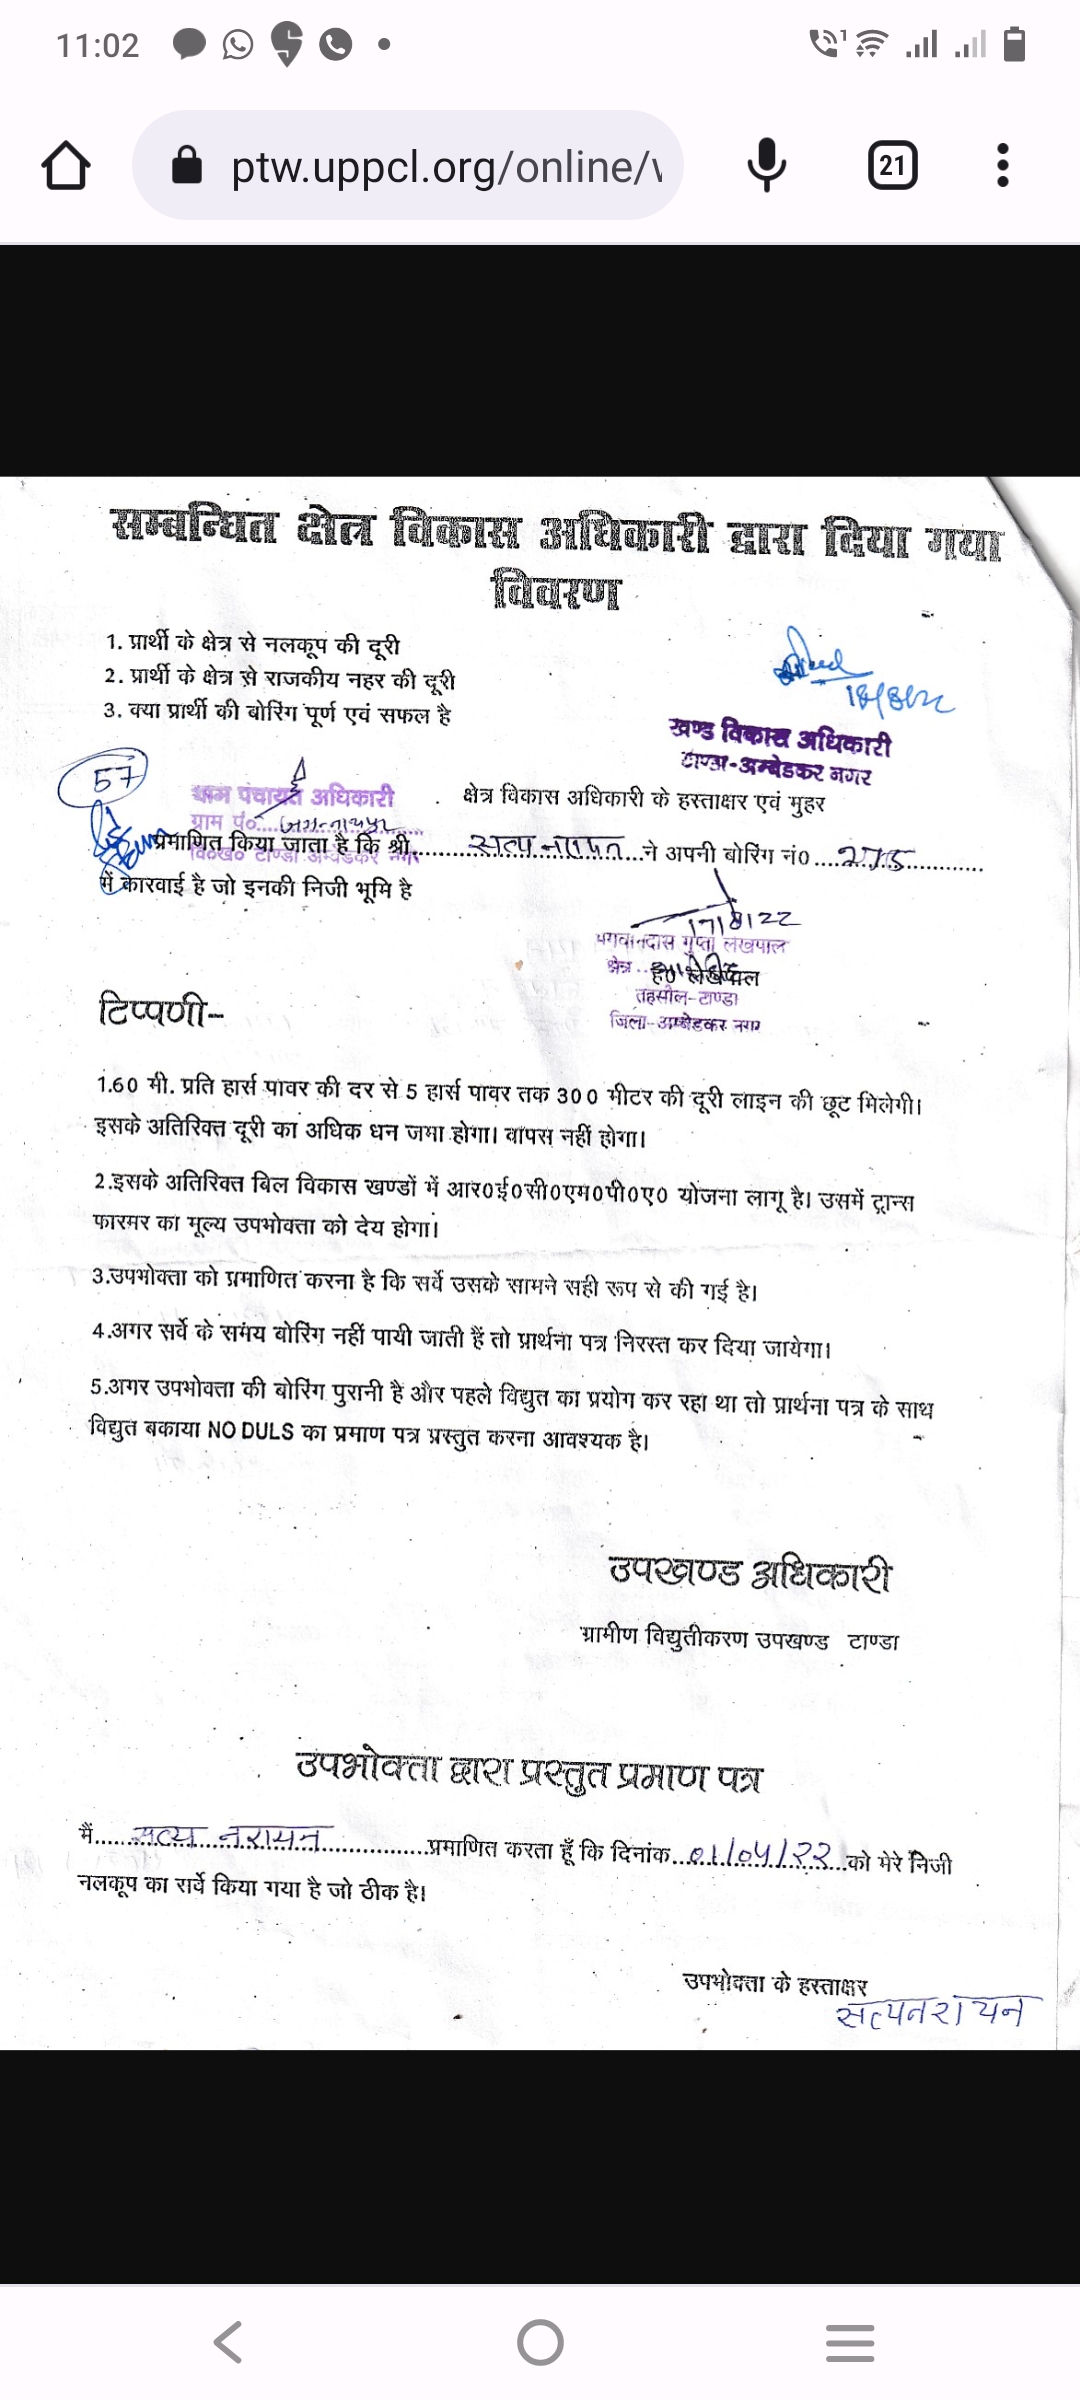 11:02
ptw.uppcl.org/online/v
21
सम्बन्धित क्षेत्र विकास अधिकारी द्वारा दिया गया
विवरण
1. प्रार्थी के क्षेत्र से नलकूप की दूरी
2. प्रार्थी के क्षेत्र से राजकीय नहर की दूरी
3. क्या प्रार्थी की बोरिंग पूर्ण एवं सफल है
खण्ड विकास अधिकारी
टाण्डा-अम्बेडकर नगर
57
ग्राम पंचायत अधिकारी
क्षेत्र विकास अधिकारी के हस्ताक्षर एवं मुहर
ग्राम पं०
प्रमाणित किया जाता है कि श्री ने अपनी बोरिंग नं०
वि०ख० टाण्डा अम्बेडकर नगर
में कारवाई है जो इनकी निजी भूमि है
भगवानदास गुप्ता लेखपाल
क्षेत्र
ह० लेखपाल
तहसील-टाण्डा
जिला-अम्बेडकर नगर
टिप्पणी-
1.60 मी. प्रति हार्स पावर की दर से 5 हार्स पावर तक 300 मीटर की दूरी लाइन की छूट मिलेगी।
इसके अतिरिक्त दूरी का अधिक धन जमा होगा। वापस नहीं होगा।
2.इसके अतिरिक्त बिल विकास खण्डों में आर०ई०सी०एम०पी०ए० योजना लागू है। उसमें ट्रान्स
फारमर का मूल्य उपभोक्ता को देय होगा।
3.उपभोक्ता को प्रमाणित करना है कि सर्वे उसके सामने सही रूप से की गई है।
4.अगर सर्वे के समय बोरिंग नहीं पायी जाती हैं तो प्रार्थना पत्र निरस्त कर दिया जायेगा।
5.अगर उपभोक्ता की बोरिंग पुरानी है और पहले विद्युत का प्रयोग कर रहा था तो प्रार्थना पत्र के साथ
विद्युत बकाया NO DULS का प्रमाण पत्र प्रस्तुत करना आवश्यक है।
उपखण्ड अधिकारी
ग्रामीण विद्युतीकरण उपखण्ड टाण्डा
उपभोक्ता द्वारा प्रस्तुत प्रमाण पत्र
मैं सत्य नरायन प्रमाणित करता हूँ कि दिनांक 01/04/22 को मेरे निजी
नलकूप का सर्वे किया गया है जो ठीक है।
उपभोक्ता के हस्ताक्षर
सत्यनरायन